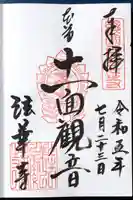 奉拝
令和五年
七月二十三日
本尊
十一面観音
弦華寺